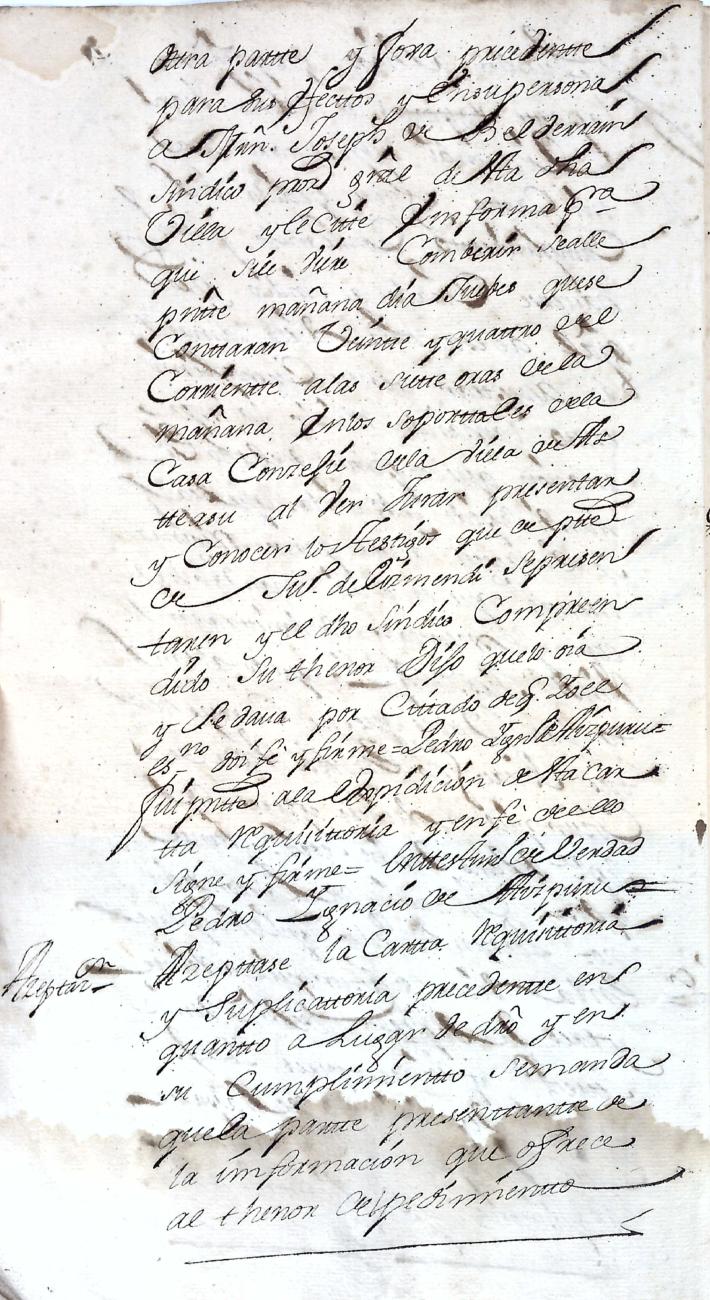 otra partte y foxa precedentte
para sus efecttos y en su persona
a Mrn. Joseph de Belderrain
Sindico pror gral de esta dha
Villa y le citté en forma pra
que si le vire combenir se alle
pnte mañana dia Juebes que se
Conttaran Veintte y quattro del
Corrientte a las siette oras de la
mañana en los soporttales de la
Casa Conzejil de la Villa de As
tteasu al Ver Jurar presentar
y Conocer los testigos que de ptte
de Jul. de Lizmendi se presen
taren y el dho Sindico Compreen
dido su thenor Dijo que lo oia
y se dava por Cittado de q. Yo el
esno doi fe y firme = Pedro Ignº de Aizpuru =
fui pntte a la expedición de esta car
tta requisittoria y en fe de ello
signe y firme = En testimº de Verdad
Pedro Ignacio de Aizpuru =
Azepttase la Cartta requisittoria
Azeptaon
y Suplicattoria precedentte en
quantto a Lugar de dro y en
su Cumplimientto se manda
que la partte presenttantte de
la información que ofrece
al thenor del pedimientto